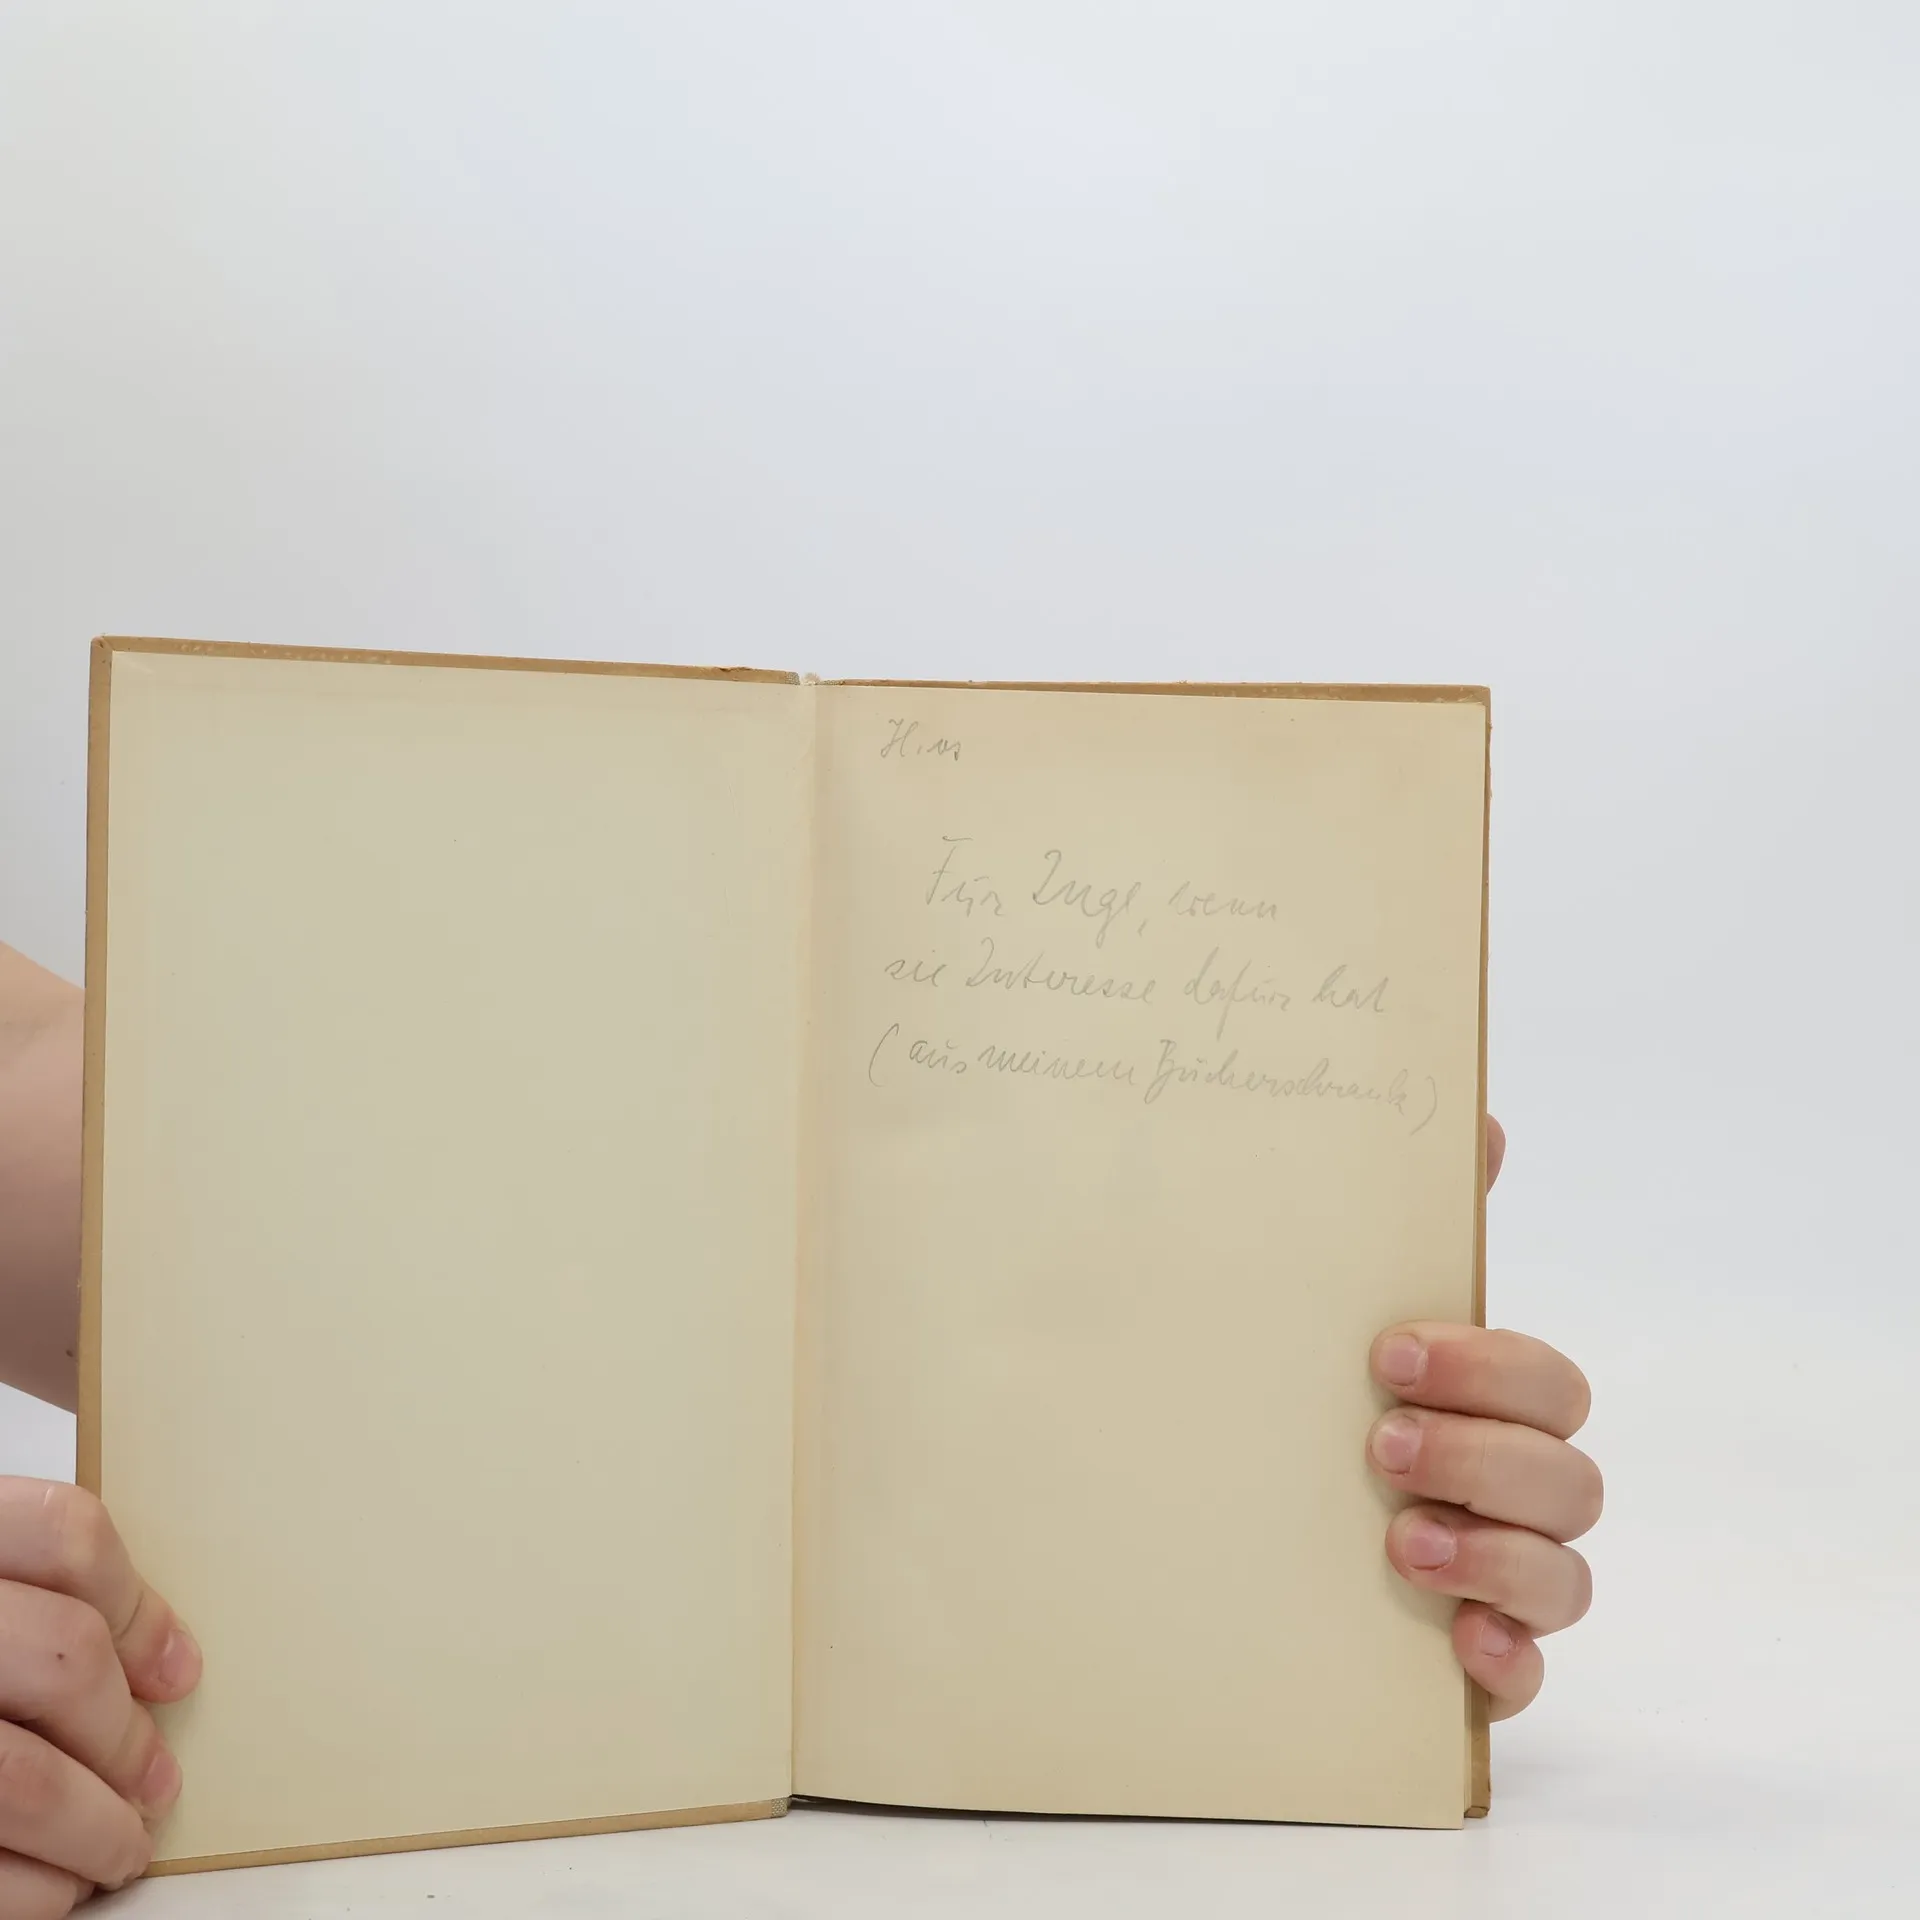 Für Inge, wenn
sie Interesse dafür hat
(aus meinem Bücherschrank)